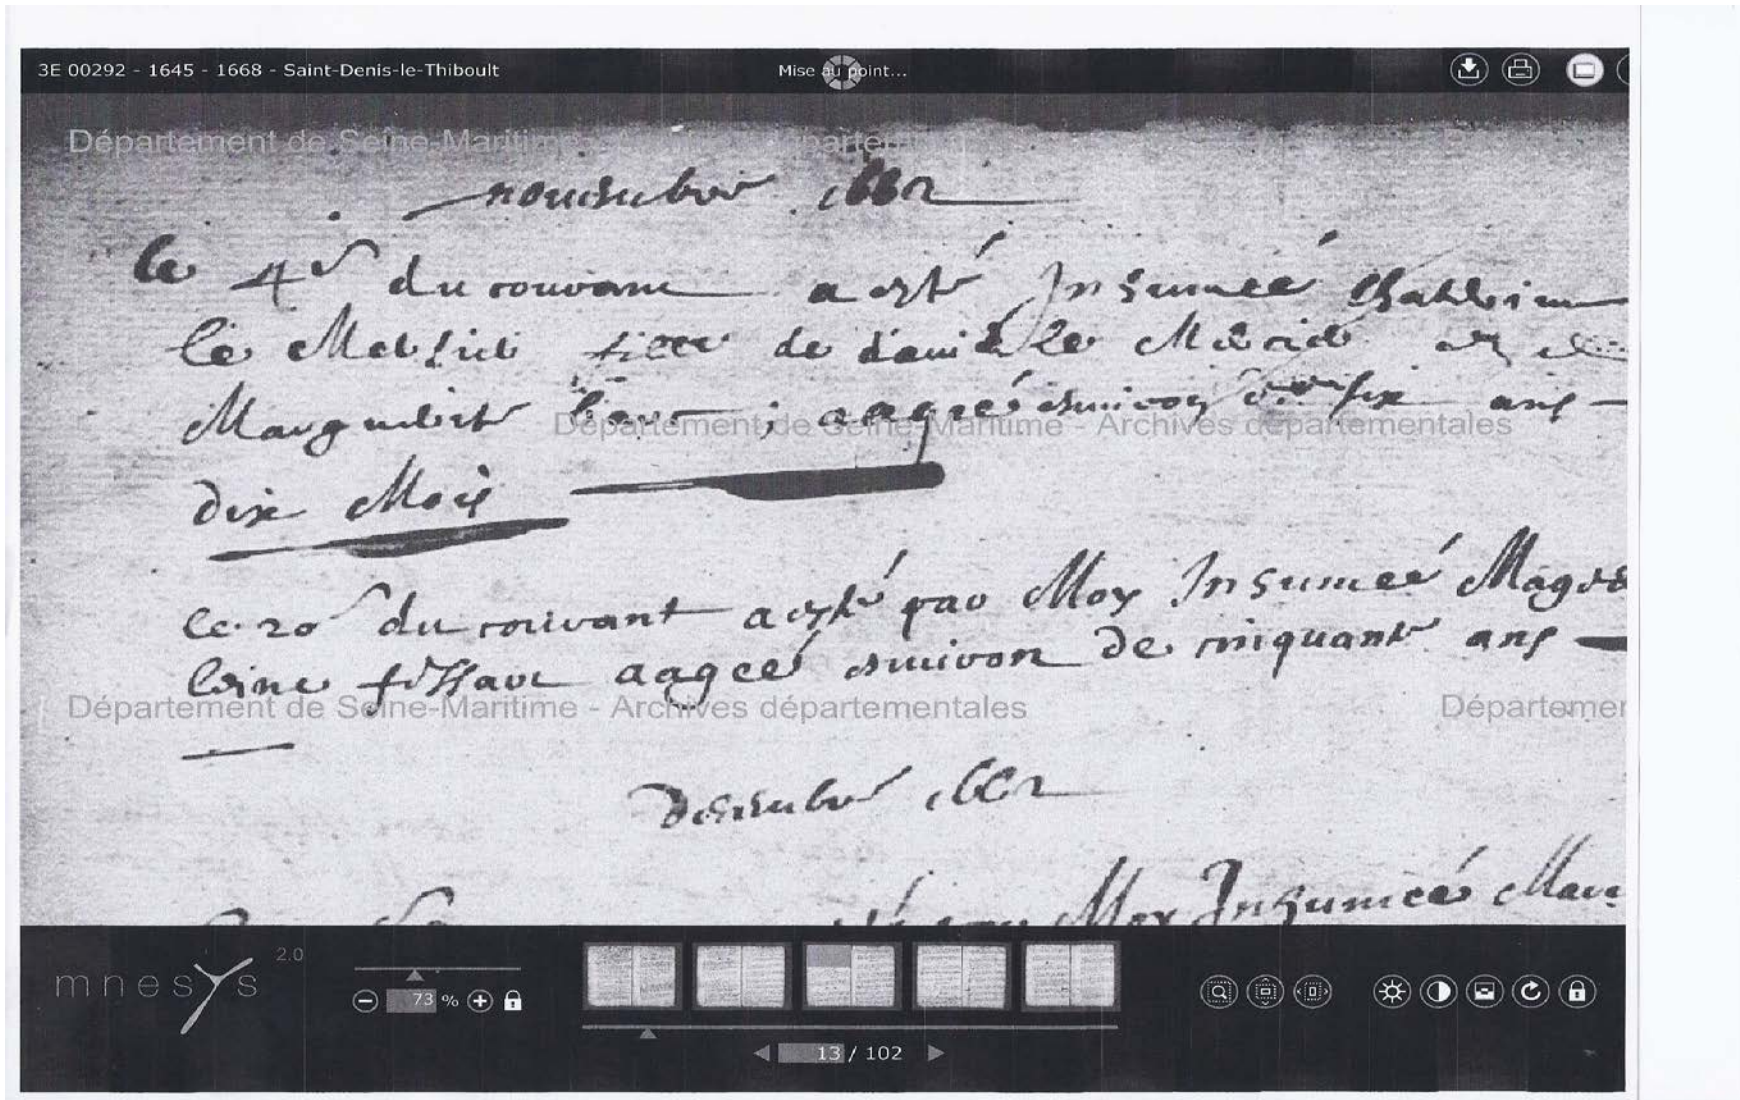 3E 00292 - 1645 - 1668 - Saint-Denis-le-Thiboult
Mise au point...
Département de Seine-Maritime - Archives départementales
nouembre 1662
le 4e du courant a esté Inhumeé Catherine
le Mercier fille de dauid le Mercier et de
Marguerite ; aageé enuiron six ans
dix Mois
Département de Seine-Maritime - Archives départementales
ce 20 du courant a esté par Moy Inhumeé Magde
leine aageé enuiron de cinquante ans
Département de Seine-Maritime - Archives départementales
Départemen
decembre 1662
Moy Inhumeé Mar
mnesys 2.0
73 %
13 / 102